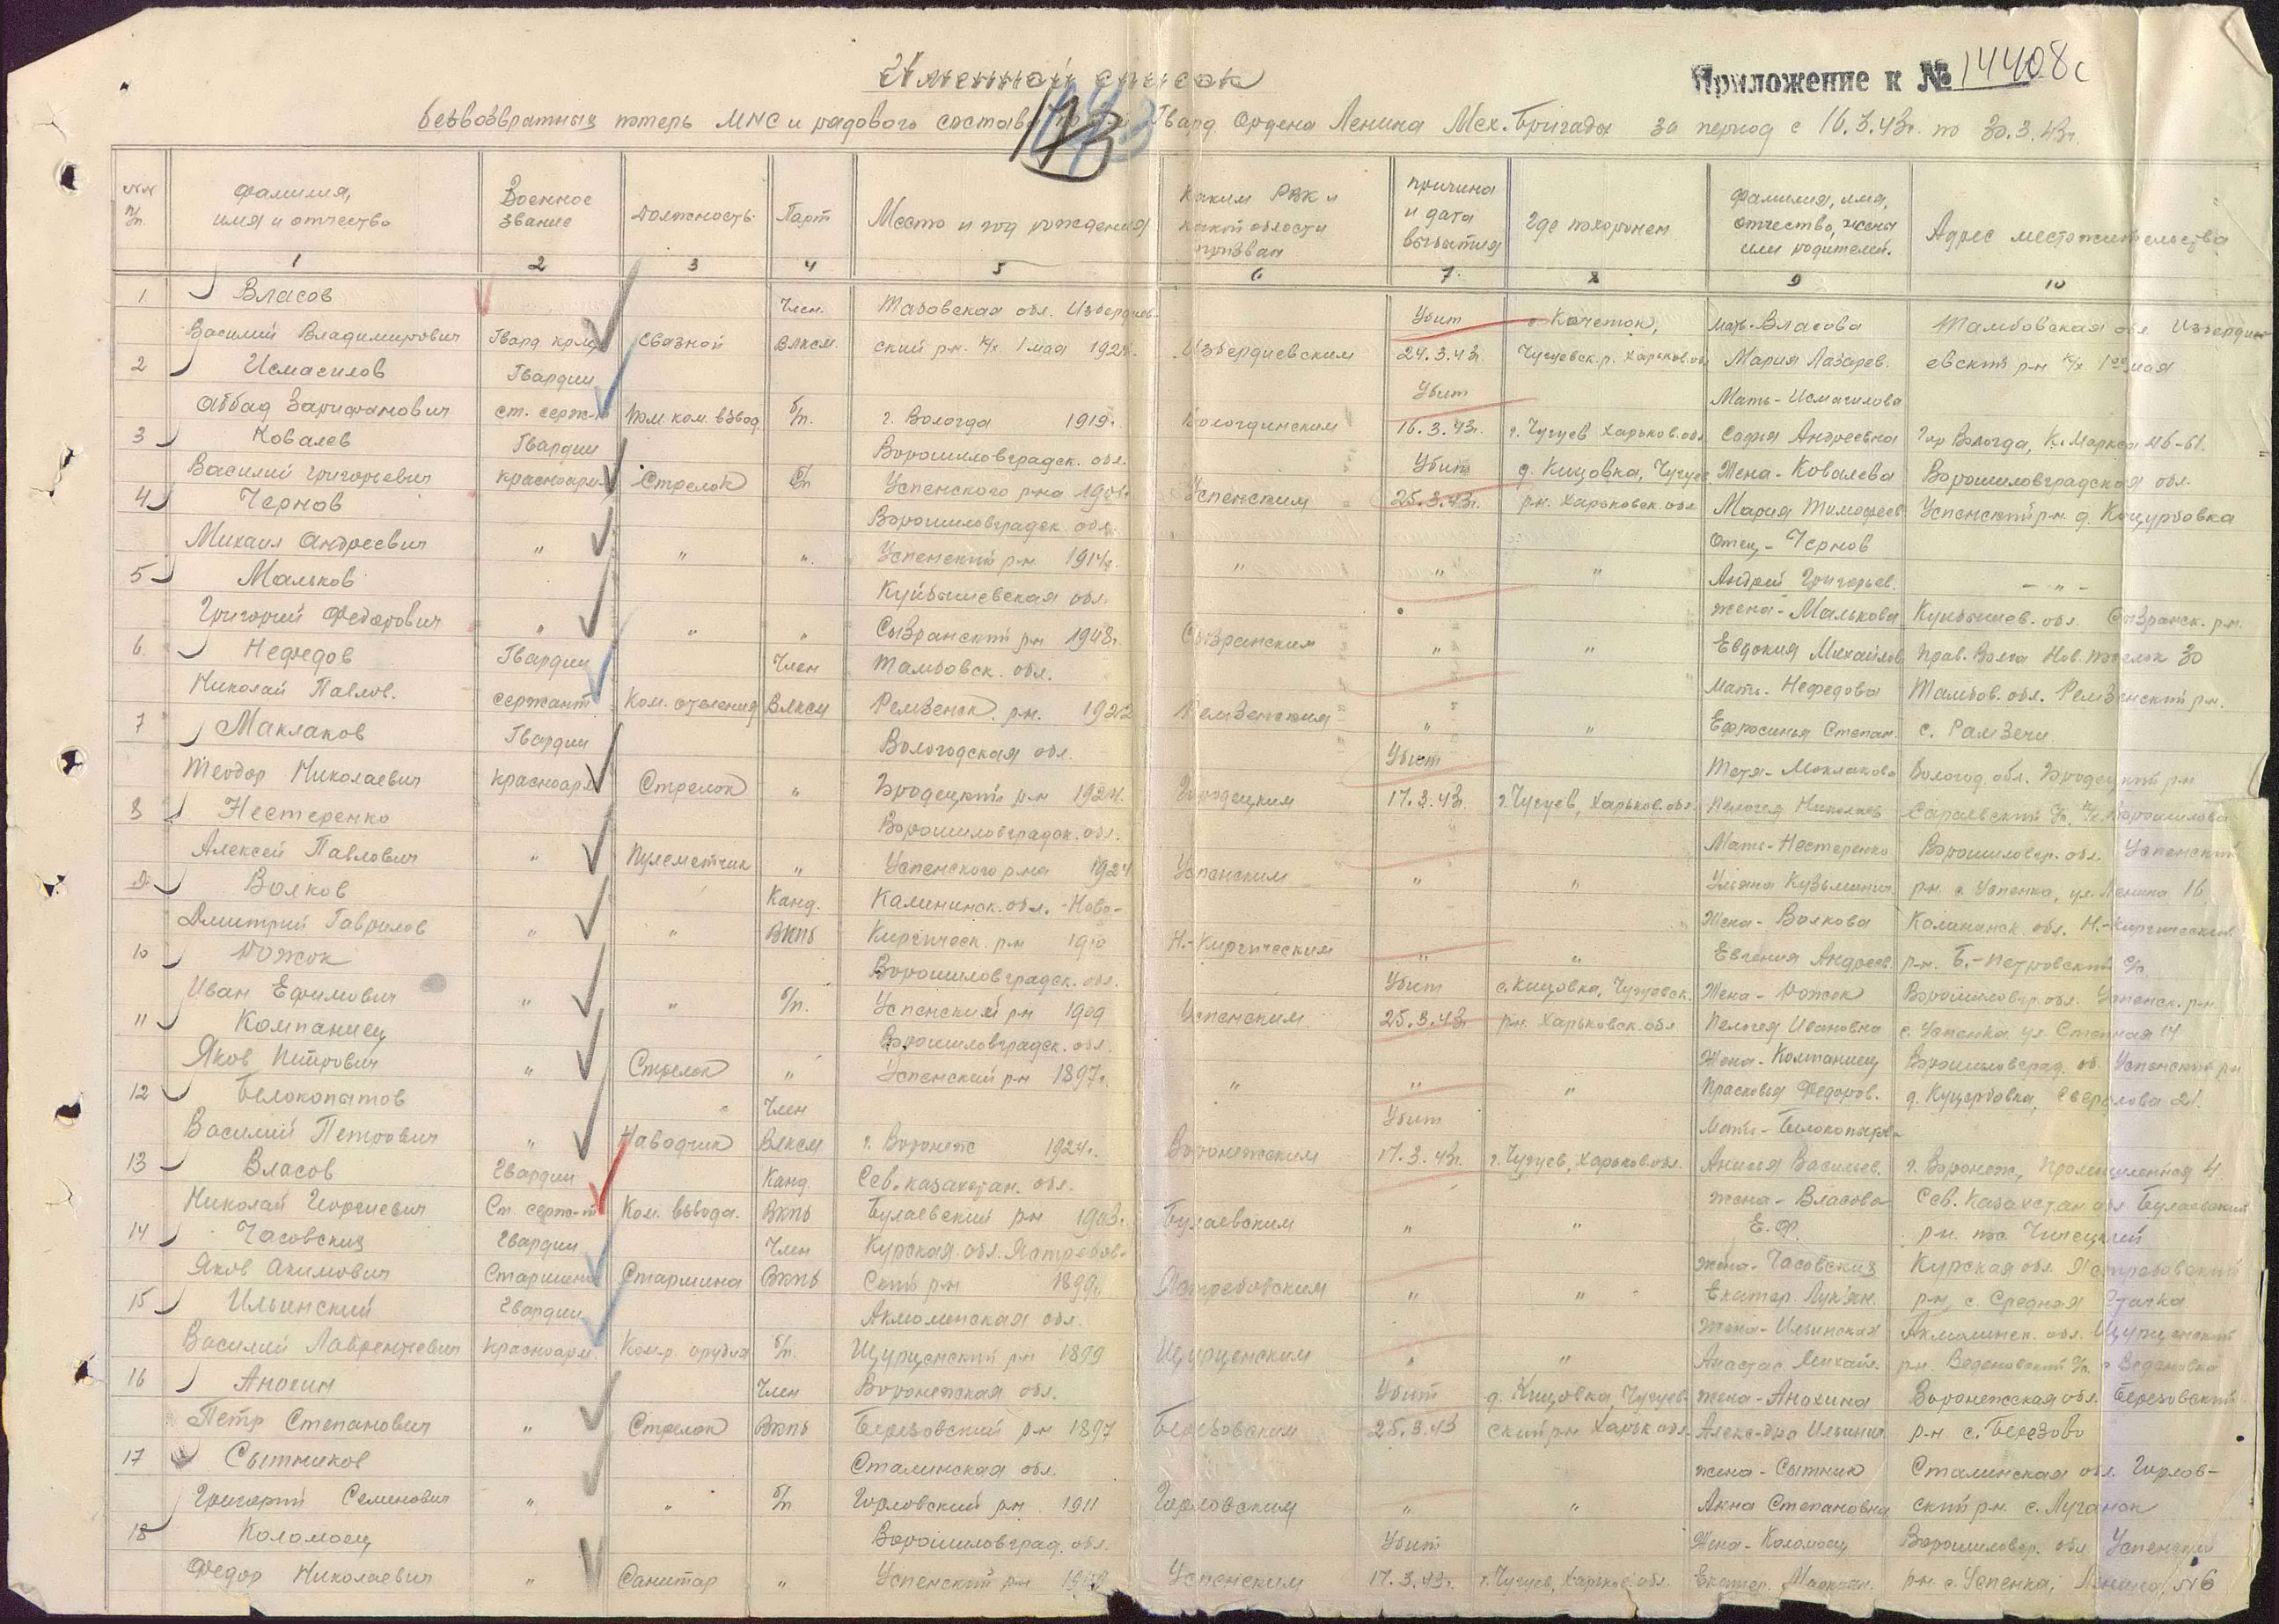 Именной список
Приложение к № 14408с
безвозвратных потерь МНС и рядового состава Гвард. Ордена Ленина Мех. Бригады за период с 16.3.43г. по 30.3.43г.
№№ п/п. Фамилия, имя и отчество Военное звание Должность Парт Место и год рождения Каким РВК и какой области призван Причина и дата выбытия Где похоронен Фамилия, имя, отчество, жены или родителей. Адрес местожительства
1 2 3 4 5 6 7 8 9 10
1 Власов Член. Тамбовская обл. Избердиев- Убит с. Кочеток, мать-Власова Тамбовская обл. Избердии-
Василий Владимирович Гвард. крм. Связной ВЛКСМ. ский р-н. к/х 1 мая Избердиевским 24.3.43г. Чугуевск. р. Харьков. об. Мария Лазарев. евский р-н к/х 1ое мая
2 Исмагилов Гвардии Убит Мать-Исмагилова
Аббад Зарифанович ст. серж-т Пом. ком. взвод. б/п. г. Вологда 1919г. Вологдинским 16.3.43г. г. Чугуев Харьков. обл. Софья Андреевна Гор Вологда, К. Маркса
3 Ковалев Гвардии Ворошиловградск. обл. Убит д. Кицовка, Чугуев Жена-Ковалева Ворошиловградская обл.
Василий Григорьевич красноарм. Стрелок б/п Успенского р-на Успенским 25.3.43г. р-н. Харьковск. обл Мария Тимофеев Успенский р-н. д.
4 Чернов Ворошиловградск. обл. Отец-Чернов
Михаил Андреевич " " " Успенский р-н. 1914г. " " " Андрей Григорьев. - " -
5 Мальков Куйбышевская обл. жена-Малькова Куйбышев. обл. Сызранск. р-н.
Григорий Федорович " " " Сызранский р-н Сызранским " " Евдокия Михайлов Прав. Волга Нов. поселок 30
6 Нефедов Гвардии Член Тамбовск. обл. Мать-Нефедова Тамбов. обл. Ремзенский р-н.
Николай Павлов. сержант Ком. отделения ВЛКСМ Ремзенск. р-н. 1922 Ремзенским " " Ефросинья Степан. с. Рамзечи
7 Маклаков Гвардии Вологодская обл. Убит Тетя-Маклакова Вологод. обл.
Теодор Николаевич красноарм Стрелок " р-н 1924. 17.3.43г. г. Чугуев, Харьков. обл. Пелогея Николаев Сараевский с/с, к/х Ворошилова
8 Нестеренко Ворошиловградск. обл. Мать-Нестеренко Ворошиловгр. обл. Успенский
Алексей Павлович " Пулеметчик " Успенского р-на 1924 Успенским " " Ульяна Кузьминич р-н. с. Успенка, ул. Ленина 16
9 Волков Канд. Калининск. обл. -Ново- Жена-Волкова Калининск. обл. Н.-
Дмитрий Гаврилов " " ВКПб р-н 1910 " " Евгения Андреев. р-н. Б.-Петровский с/с
10 Ножок Ворошиловградск. обл. Убит с. Кицовка, Чугуевск. Жена-Ножок Ворошиловгр. обл. Успенск. р-н.
Иван Ефимович " " б/п. Успенский р-н 1909 Успенским 25.3.43г р-н. Харьковск. обл Пелогея Ивановна с. Успенка ул. Степная 14
11 Компаниец Ворошиловградск. обл. Жена-Компаниец Ворошиловград. об. Успенский р-н
Яков Петрович " Стрелок " Успенский р-н 1897г. " " " Прасковья Федоров. д. Свердлова 21.
12 Белокопытов Член Убит Мать-Белокопыто-
Василий Петрович " Наводчик ВЛКСМ г. Воронеж 1924г. Воронежским 17.3.43г. г. Чугуев, Харьков. обл. Анисия Васильев. г. Воронеж, Промышленная 4
13 Власов Гвардии Канд. Сев. Казахстан. обл. жена-Власова Сев. Казахстан. обл Булаевский
Николай Георгиевич Ст. серж-т Ком. взвода. ВКПб Булаевский р-н 1903г. Булаевским " " Е.Ф. р-н.
14 Часовских Гвардии Член Курская обл. Ястребов- жена-Часовских Курская обл. Ястребовский
Яков Акимович Старшина Старшина ВКПб ский р-н 1899г. Ястребовским " " Екатер. Лукян. р-н, с. Средняя
15 Ильинский Гвардии Акмолинская обл. жена-Ильинская Акмолинск. обл. Щурценский
Василий Лаврентьевич красноарм. Ком-р. орудия б/п. Щурценский р-н 1899 Щурценским " " Анастас. Михайл. р-н.
16 Анохин Член Воронежская обл. Убит д. Кицовка, Чугуев- жена-Анохина Воронежская обл. Березовский
Петр Степанович " Стрелок ВКПб Березовский р-н 1897 Березовским 25.3.43 ский р-н Харьк. обл. Алекс-дра Ильинич р-н с. Березово
17 Сытников Сталинская обл. жена-Сытник Сталинская обл. Горлов-
Григорий Семенович " " б/п Горловский р-н. 1911 Горловским " " Анна Степановна ский р-н. с. Луганск
18 Коломоец Ворошиловград. обл. Убит Жена-Коломоец Ворошиловгр. обл. Успенский
Федор Николаевич " Санитар " Успенский р-н Успенским 17.3.43г. г. Чугуев, Харьков. обл. Екатер. р-н. с. Успенка, Ленина, №6